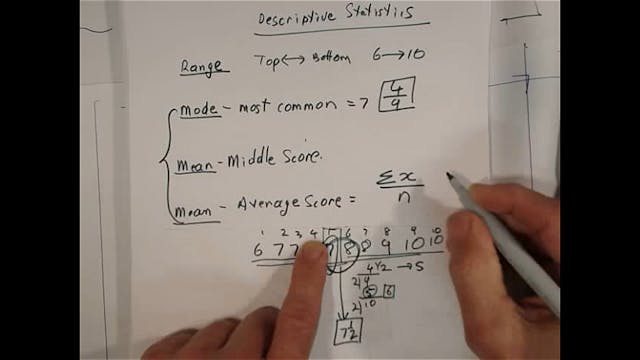 Descriptive Statistics
Range Top ↔ Bottom 6 → 10
Mode - most common = 7 4/9
Mean - Middle Score.
Mean - Average Score = Σx/n
1 2 3 4 5 6 7 8 9 10
6 7 7 7 8 8 9 10 10
→ 5
2 10
7 1/2